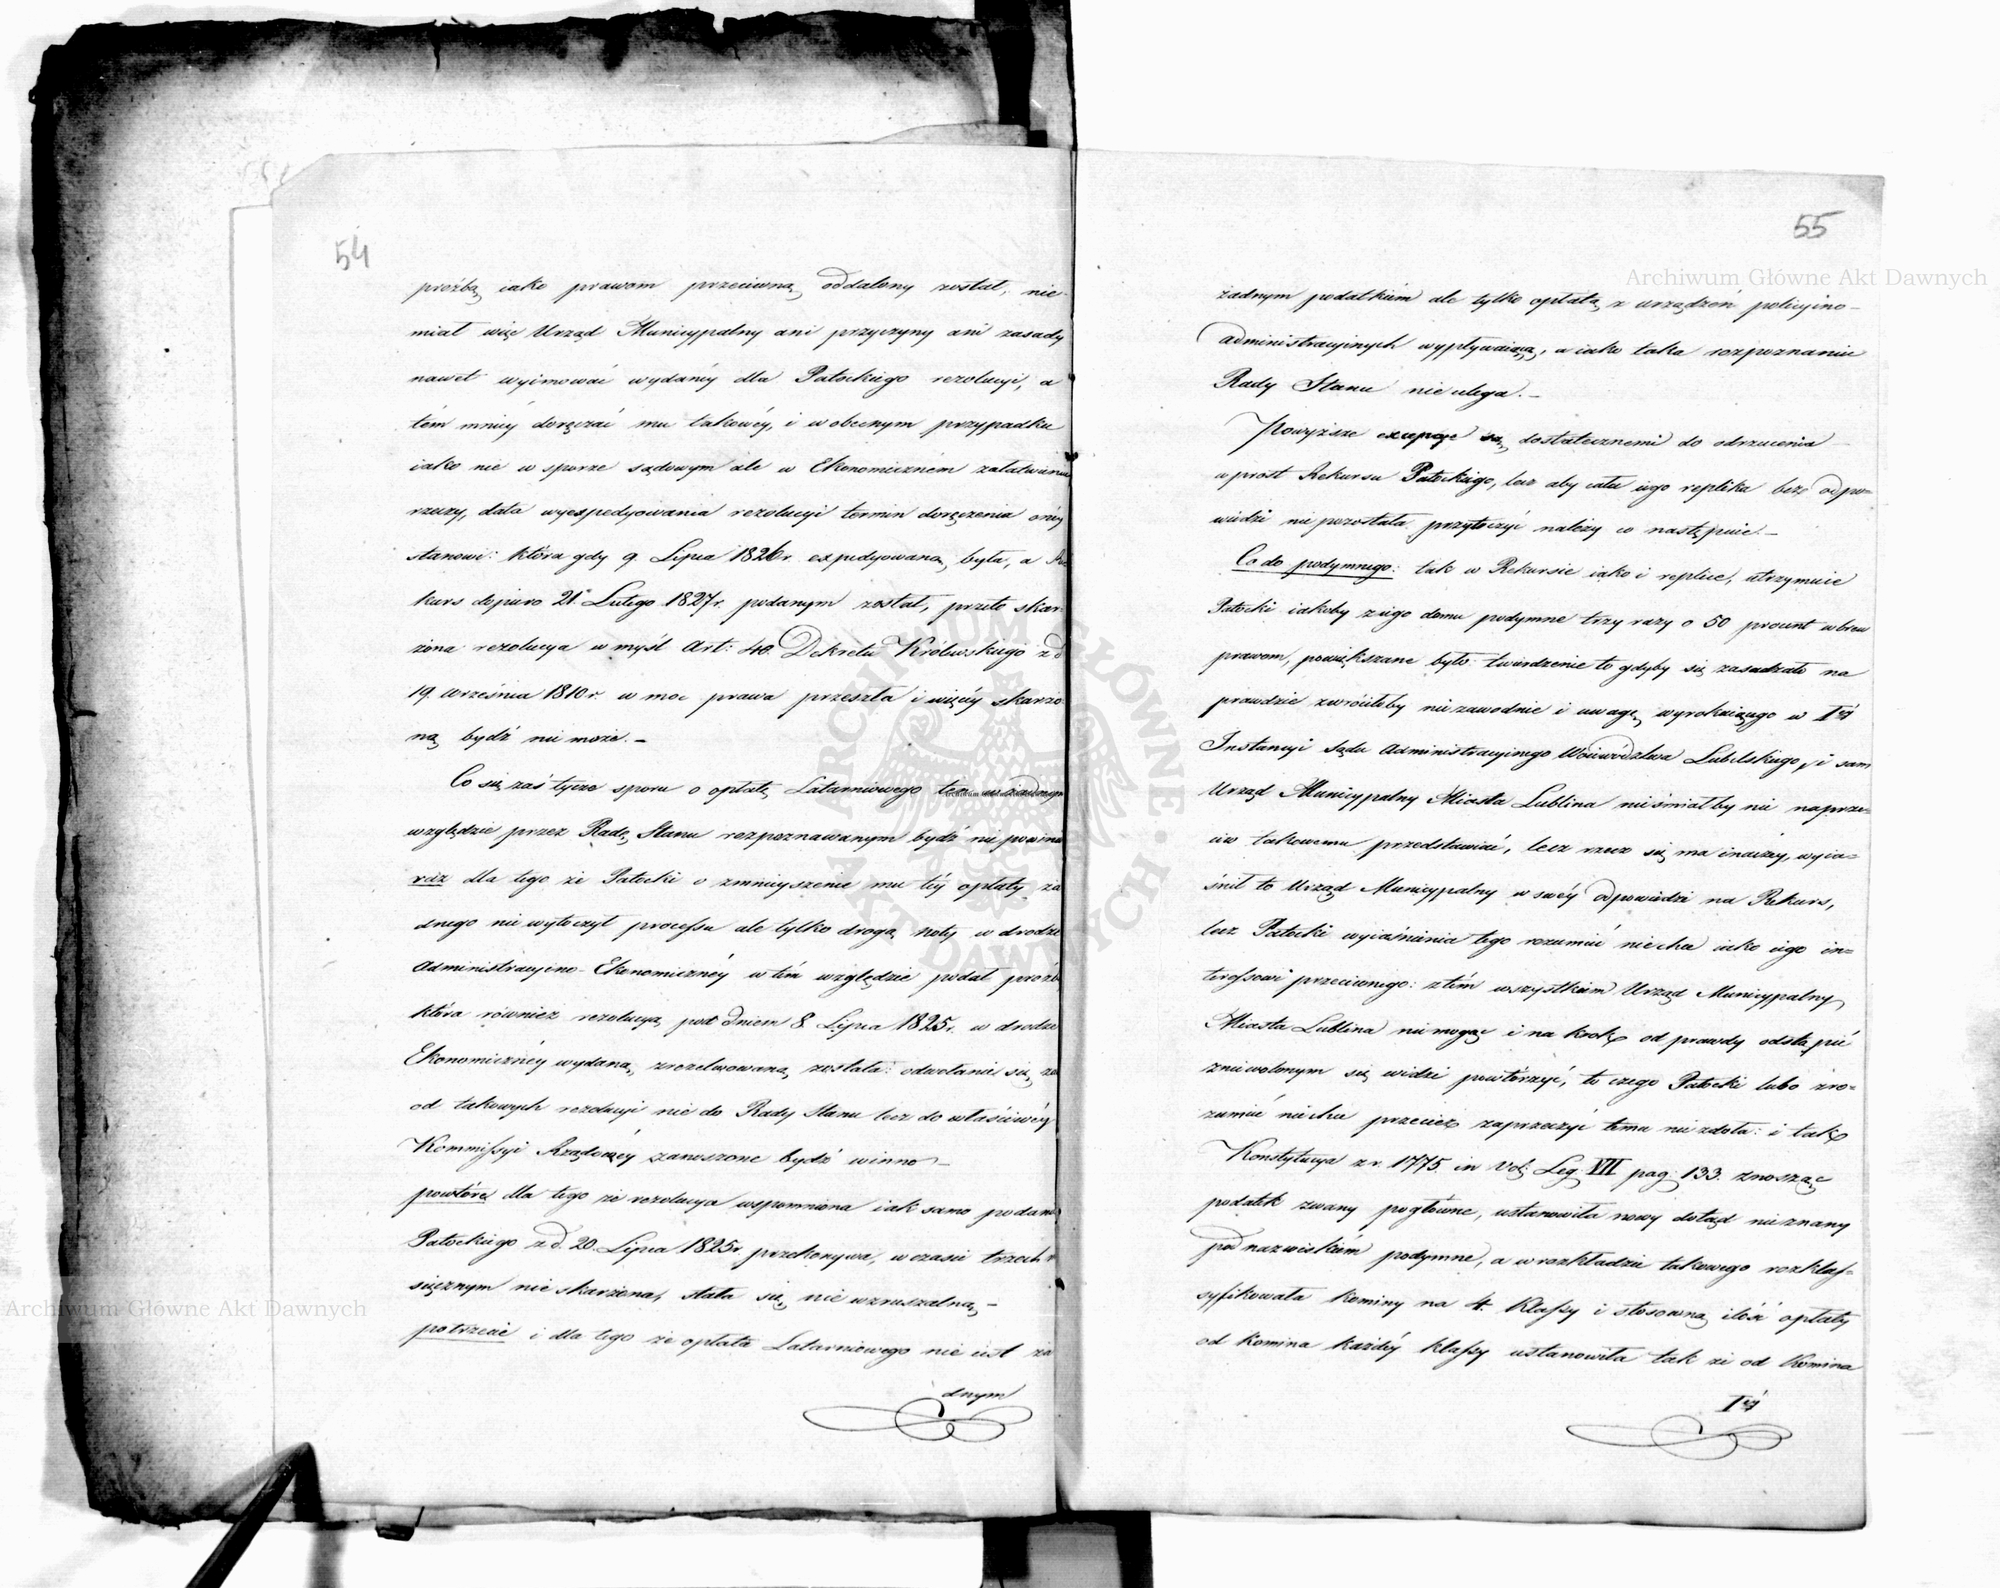 54
proźbą iako prawom przeciwną oddalony został, nie
miał więc Urząd Municypalny ani przyczyny ani zasady
nawet wyimować wydanéy dla Patockiego rezolucyi, a
tém mniéy doręczać mu takowéy, i w obecnym przypadku
iako nie w sporze sądowym ale w Ekonomiczném załatwieniu
rzeczy, data wyexpedyowania rezolucyi termin doręczenia onéy
stanowi: która gdy 9. Lipca 1826 r. expedyowaną była, a Re
kurs dopiero 21. Lutego 1827 r. podanym został, przeto skar
żona rezolucya w myśl Art: 40. Dekretu Królewskiego z d.
19. Września 1810 r. w moc prawa przeszła i więcéy skarżo
ną bydź nie może. –
Co się zaś tycze sporu o opłatę Latarniowego ten w żadnym
względzie przez Radę Stanu rozpoznawanym bydź nie powinien
raz dla tego że Patocki o zmnieyszenie mu téy opłaty ża
dnego nie wytoczył processu ale tylko drogą noty w drodze
Administracyino-Ekonomicznéy w tém względzie podał proźbę
która również rezolucyą pod dniem 8. Lipca 1825 r. w drodze
Ekonomicznéy wydaną, zrezolwowaną została: odwołanie się za
od takowych rezolucyi nie do Rady Stanu lecz do właściwéy
Kommissyi Rządowéy zanoszone bydź winno –
powtóre dla tego że rezolucya wspomniona iak samo podanie
Patockiego z d. 20. Lipca 1825 r. przekonywa, w czasie trzech m
sięcznym nie skarżona, stała się nie wzruszalną –
potrzecie i dla tego że opłata Latarniowego nie iest ża
dnym
55
żadnym podatkiem ale tylko opłatą z urządzeń policyino –
Administracyinych wypływaiącą, a iako taka rozpoznaniu
Rady Stanu nie ulega. –
Powyższe excepcye są dostatecznemi do odrzucenia –
w prost Rekursu Patockiego, lecz aby cała iego replika bez odpo=
wiedzi nie pozostała przytoczyć należy co następuie. –
Co do podymnego: tak w Rekursie iako i replice, utrzymuie
Patocki iakoby z iego domu podymne trzy razy o 50 procent wbrew
prawom, powiększane było: twierdzenie to gdyby się zasadzało na
prawdzie zwróciłoby niezawodnie i uwagę wyrokuiącego w Iéy
Instancyi Sądu Administracyinego Woiewództwa Lubelskiego, i sam
Urząd Municypalny Miasta Lublina nieśmiałby nic naprze=
ciw takowemu przedstawiać, lecz rzecz się ma inaczéy, wyia=
śnił to Urząd Municypalny w swéy odpowiedzi na Rekurs,
lecz Patocki wyiaśnienia tego rozumieć niechce iako iego in=
teressowi przeciwnego: z tém wszystkiém Urząd Municypalny
Miasta Lublina nie mogąc i na krok od prawdy odstąpić
zniewolonym się widzi powtórzyć, to czego Patocki lubo zro=
zumieć niechce przecież zaprzeczyć temu nie zdoła: i tak
Konstytucya z r. 1775. in Vol: Leg: VII pag: 133. znosząc
podatek zwany pogłówne, ustanowiła nowy dotąd nieznany
pod nazwiskiém podymne, a w rozkładzie takowego rozklas=
syfikowała kominy na 4. Klassy i stosowną ilość opłaty
od Komina każdéy klassy ustanowiła tak że od Komina
Iéy
Archiwum Główne Akt Dawnych
Archiwum Główne Akt Dawnych
ARCHIWUM GŁÓWNE AKT DAWNYCH